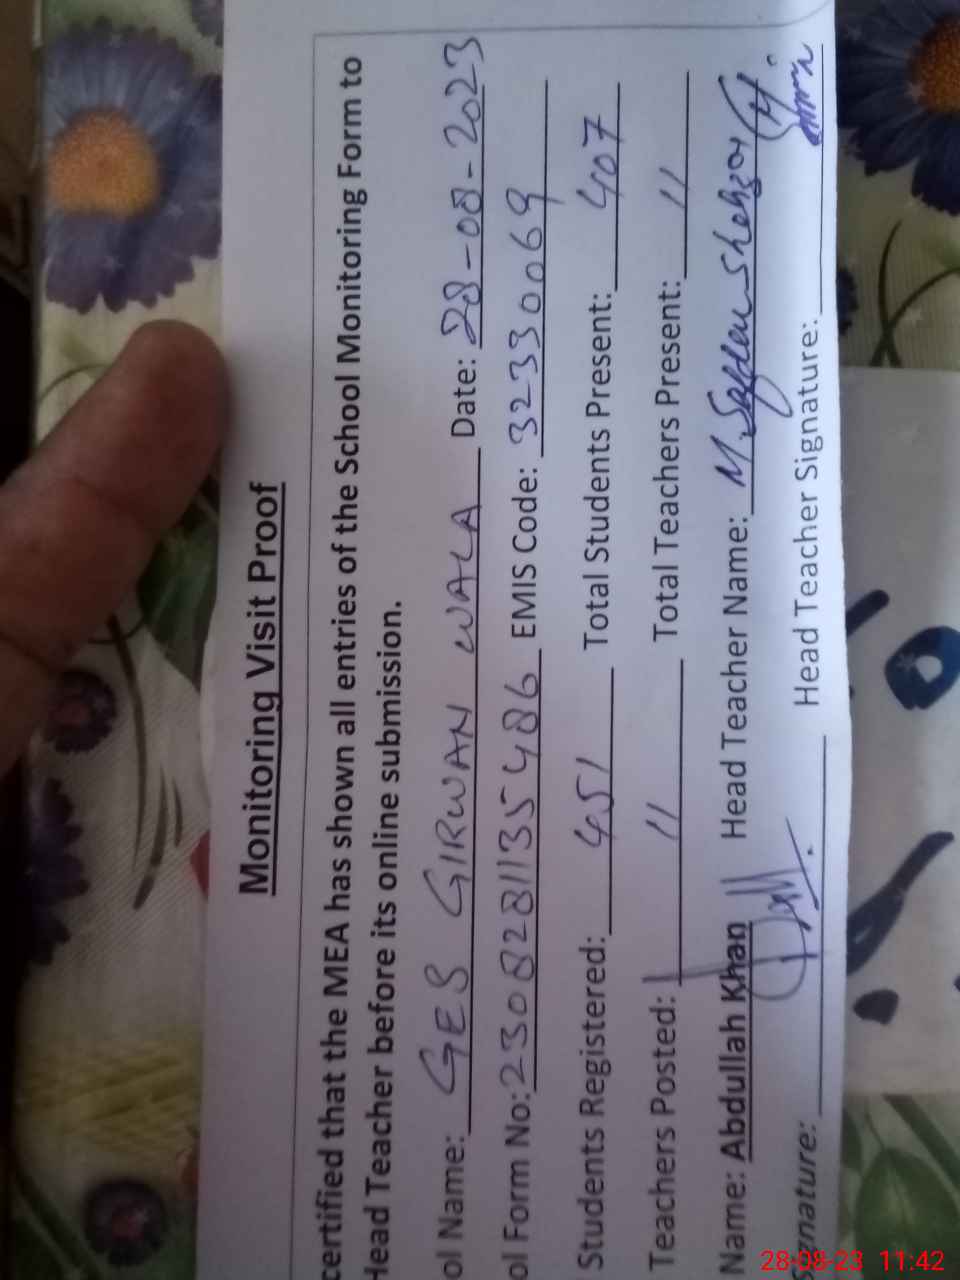 Monitoring Visit Proof
certified that the MEA has shown all entries of the School Monitoring Form to
Head Teacher before its online submission.
ol Name: GES GIRWAN WALA Date: 28-08-2023
ol Form No: 230828113548 6 EMIS Code: 32330069
Students Registered: 451 Total Students Present: 407
Teachers Posted: 11 Total Teachers Present: 11
Name: Abdullah Khan Head Teacher Name: M.
Signature: Head Teacher Signature:
28-08-23 11:42